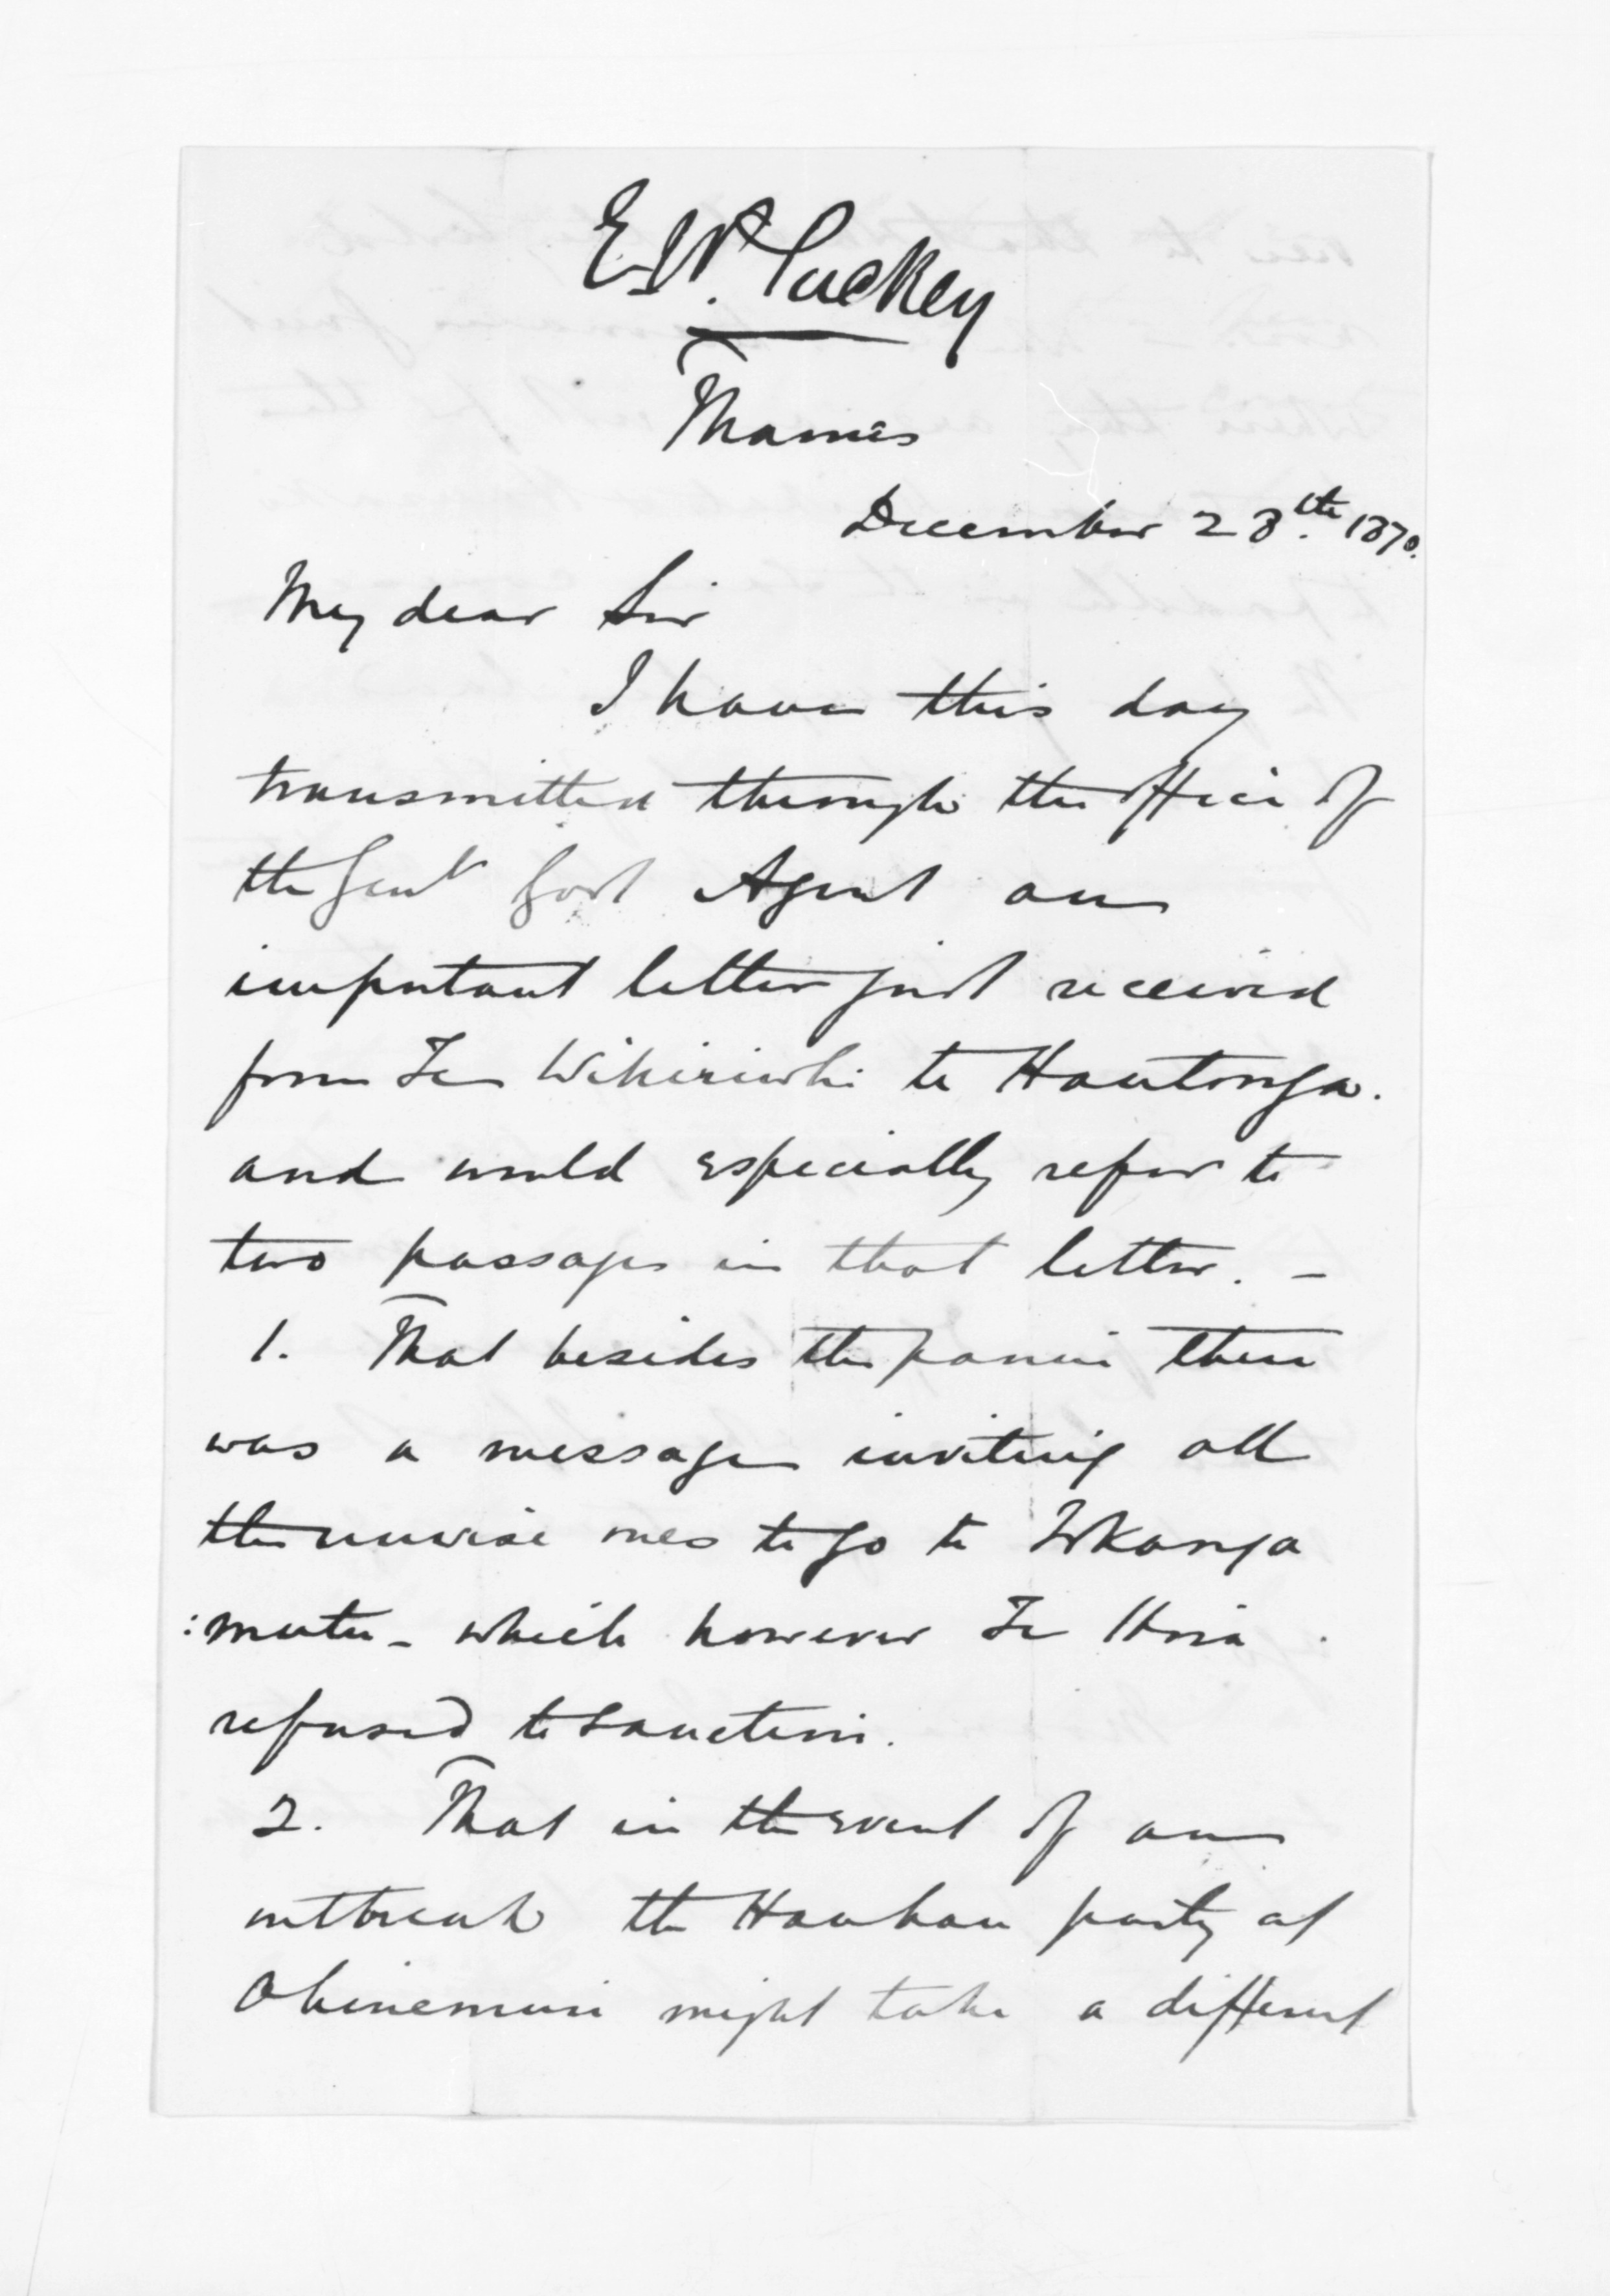 E. W. Puckey
Thames
December 28th. 1870.
My dear Sir
I have this day
transmitted through the office of
the Genl Govt Agent an
important letter just received
from Te Wikiriwhi te Hautonga.
and would especially refer to
two passages in that letter. –
1. That besides the panui there
was a message inviting all
the unwise ones to go to Whanga
:mata – which however Te Hira
refused to sanction.
2. That in the event of an
outbreak the Hauhau party at
Ohinemuri might take a different